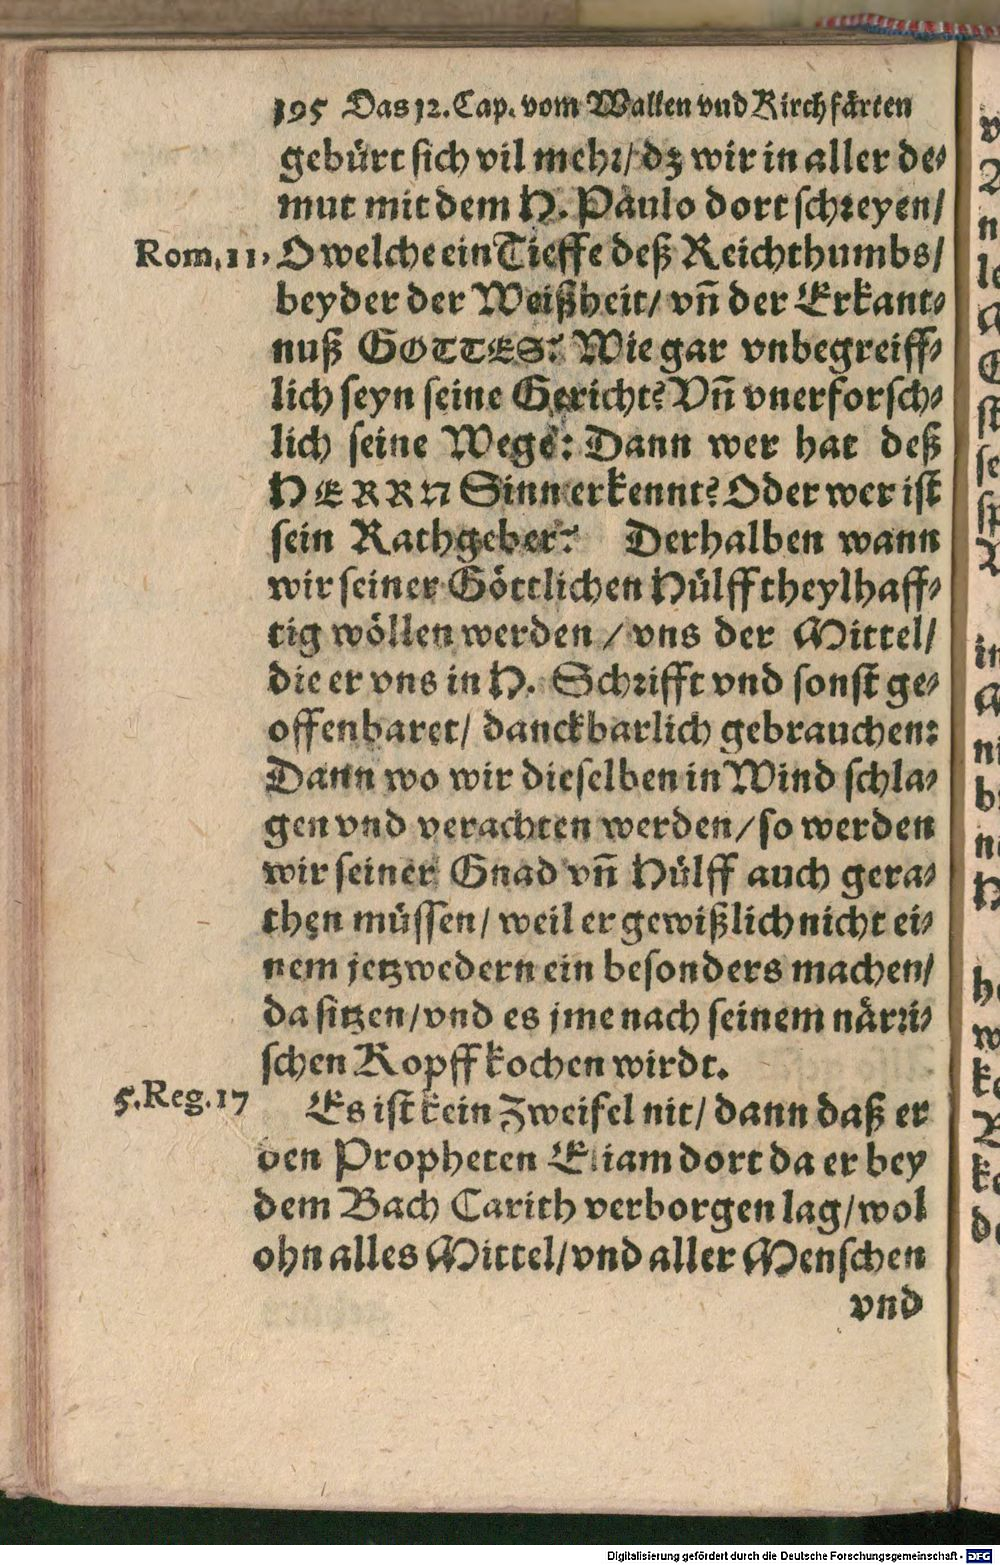 195 Das 12. Cap. vom Wallen vnd Kirchfärten
gebürt sich vil mehr/ dz wir in aller de⸗
mut mit dem H. Paulo dort schreyen/
Rom. 11. O welche ein Tieffe deß Reichthumbs/
beyder der Weißheit/ vñ der Erkant⸗
nuß GOTTES: Wie gar vnbegreiff⸗
lich seyn seine Gericht? Vñ vnerforsch⸗
lich seine Wege: Dann wer hat deß
HERRN Sinn erkennt? Oder wer ist
sein Rathgeber? Derhalben wann
wir seiner Göttlichen Hülff theylhaff⸗
tig wöllen werden / vns der Mittel/
die er vns in H. Schrifft vnd sonst ge⸗
offenbaret/ danckbarlich gebrauchen:
Dann wo wir dieselben in Wind schla⸗
gen vnd verachten werden/ so werden
wir seiner Gnad vñ Hülff auch gera⸗
then müssen/ weil er gewißlich nicht ei⸗
nem jetzwedern ein besonders machen/
da sitzen/ vnd es jme nach seinem närri⸗
schen Kopff kochen wirdt.
5. Reg. 17 Es ist kein Zweifel nit/ dann daß er
den Propheten Eliam dort da er bey
dem Bach Carith verborgen lag/ wol
ohn alles Mittel/ vnd aller Menschen
vnd
Digitalisierung gefördert durch die Deutsche Forschungsgemeinschaft - DFG